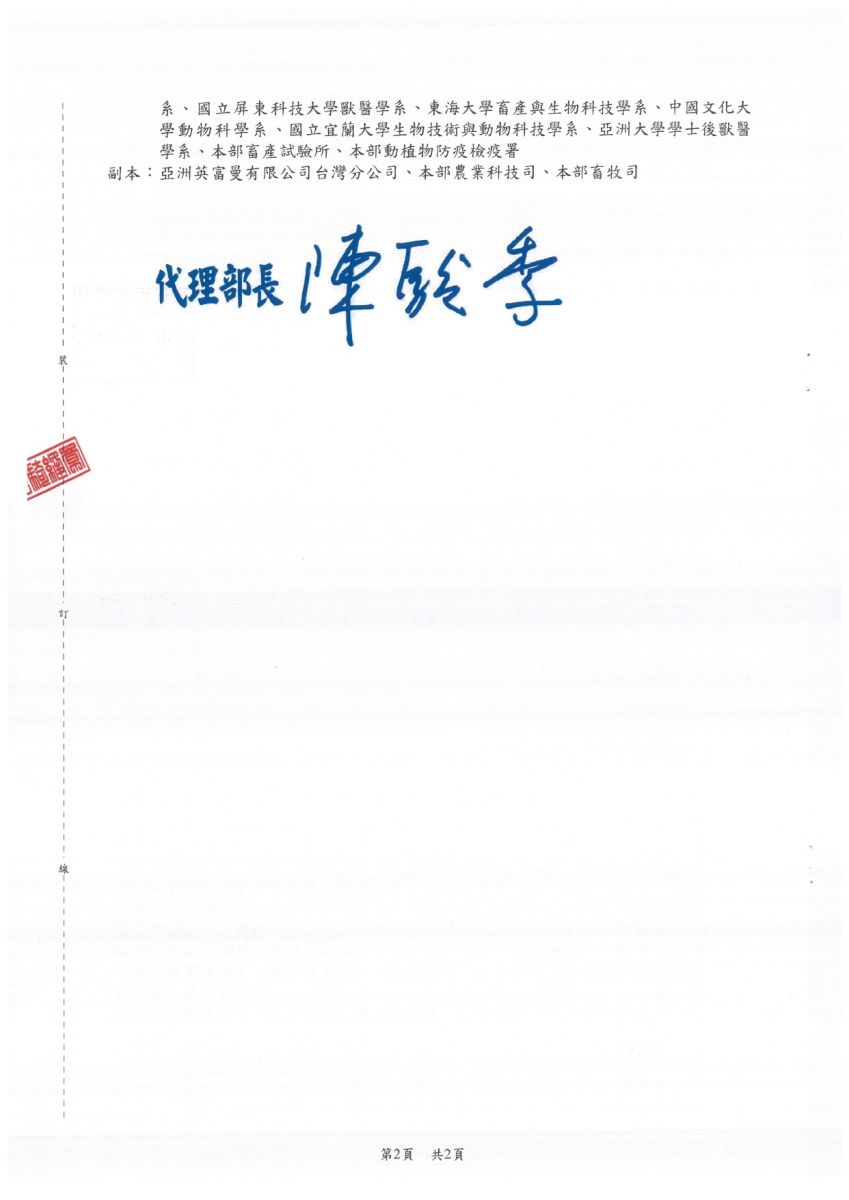 系、國立屏東科技大學獸醫學系、東海大學畜產與生物科技學系、中國文化大
學動物科學系、國立宜蘭大學生物技術與動物科技學系、亞洲大學學士後獸醫
學系、本部畜產試驗所、本部動植物防疫檢疫署
副本：亞洲英富曼有限公司台灣分公司、本部農業科技司、本部畜牧司
代理部長 陳駿季
裝
訂
線
第2頁 共2頁